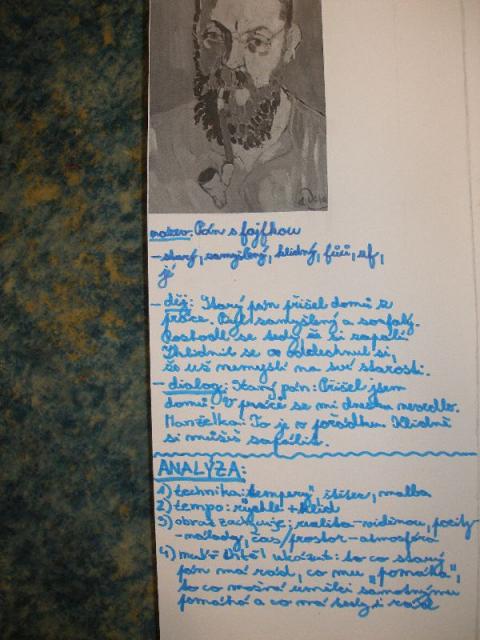 název: Pán s fajfkou
- starý, zamyšlený, klidný, fííí, ef,
jé
- děj: Starý pán přišel domů z
práce. Byl zamyšlený a
Rozhodl se tedy že si zapálí.
Zklidnil se a oddechnul si,
že už nemyslí na své starosti.
- dialog: Starý pán: Přišel jsem
domů. V práci se mi dneska nevedlo.
Manželka: To je v pořádku. Klidně
si můžeš zapálit.
ANALÝZA:
1) technika: tempery, štětec, malba
2) tempo: rychlé + klid
3) obraz zachycuje: realita - viděnou, pocity
- nálady, čas/prostor - atmosféra
4) chtěl ukázat: to co starý
pán má rád, co mu "pomáhá",
to co možná umělci samotnému
pomáhá a co má tedy i rád